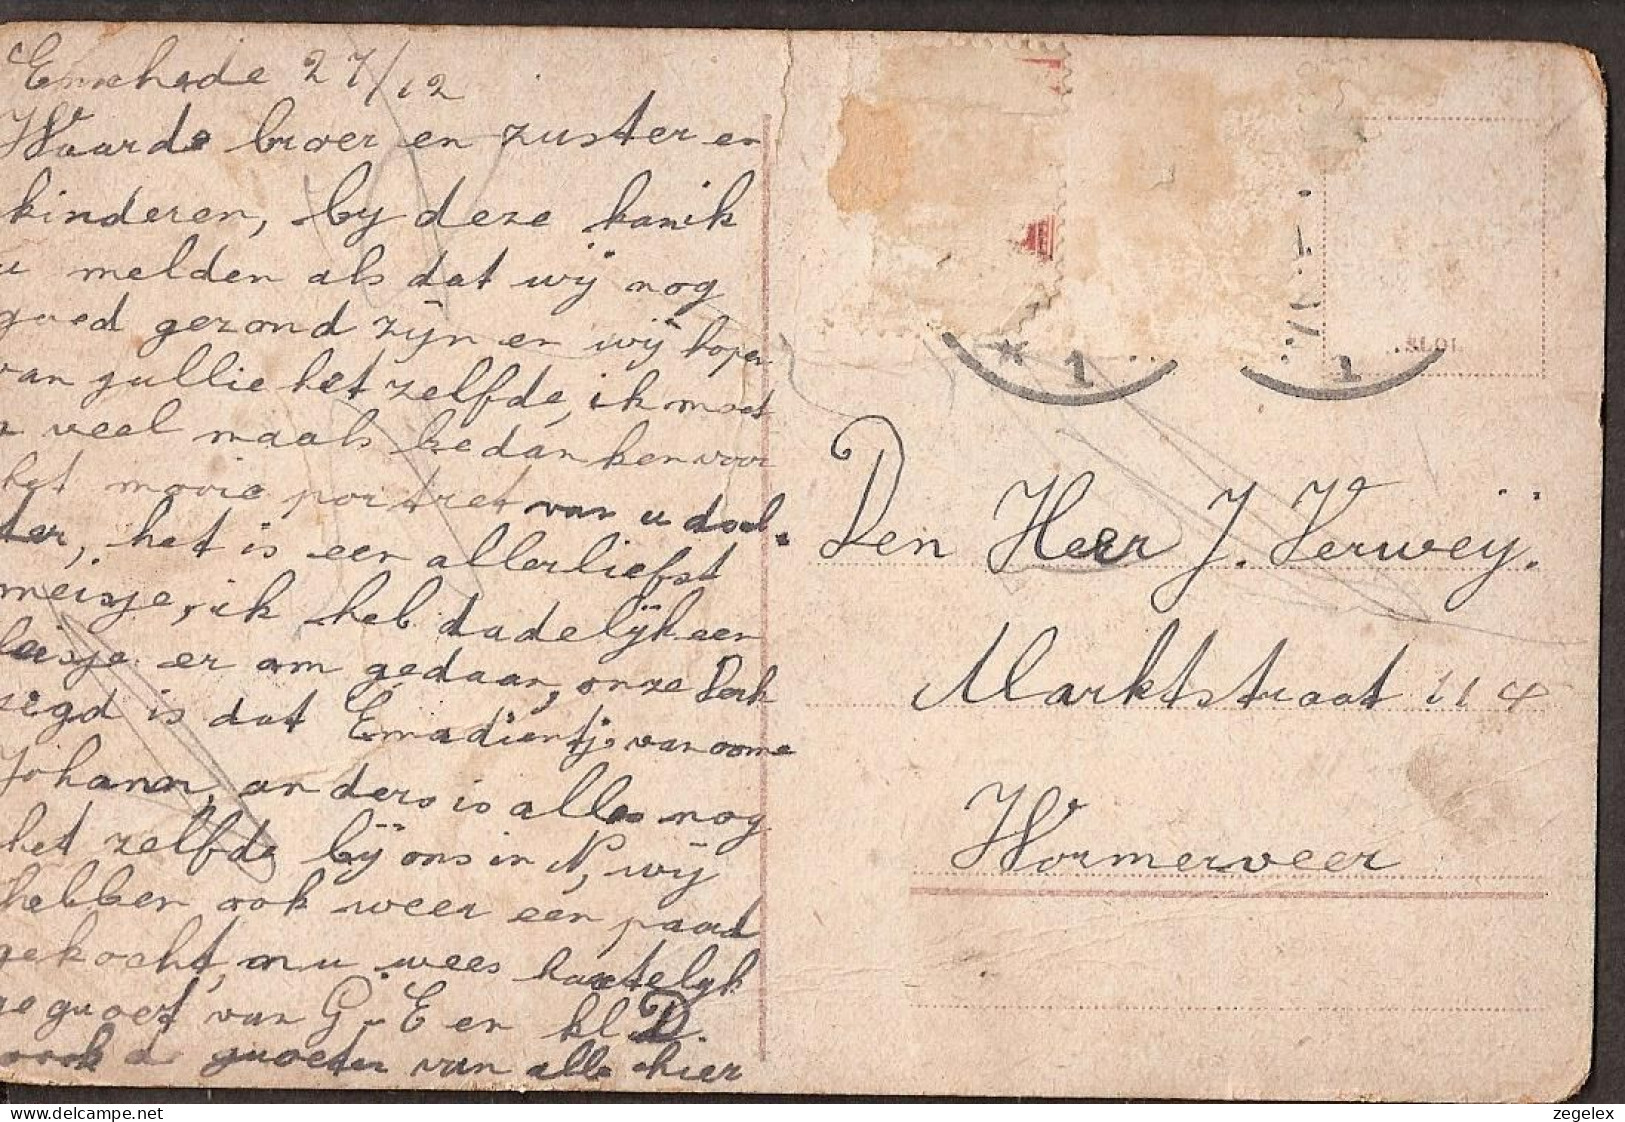 Enschede 27/12
Waarde broer en zuster en
kinderen, by deze kan ik
u melden als dat wij nog
goed gezond zijn en wij hopen
van jullie het zelfde, ik moet
u veel maals bedanken voor
het mooie portret van u doch-
ter, het is een allerliefst
meisje, ik heb dadelijk een
leisje er om gedaan, onze Derk
zegd is dat Emadientje van oome
Johann, anders is alles nog
het zelfde bij ons in N, wij
hebben ook weer een paard
gekocht, nu wees hartelyk
gegroet van G. E en kl D.
ook de groeten van alle hier
* 1
1
Den Heer J. Verweij.
Marktstraat 114
Wormerveer
zegelex